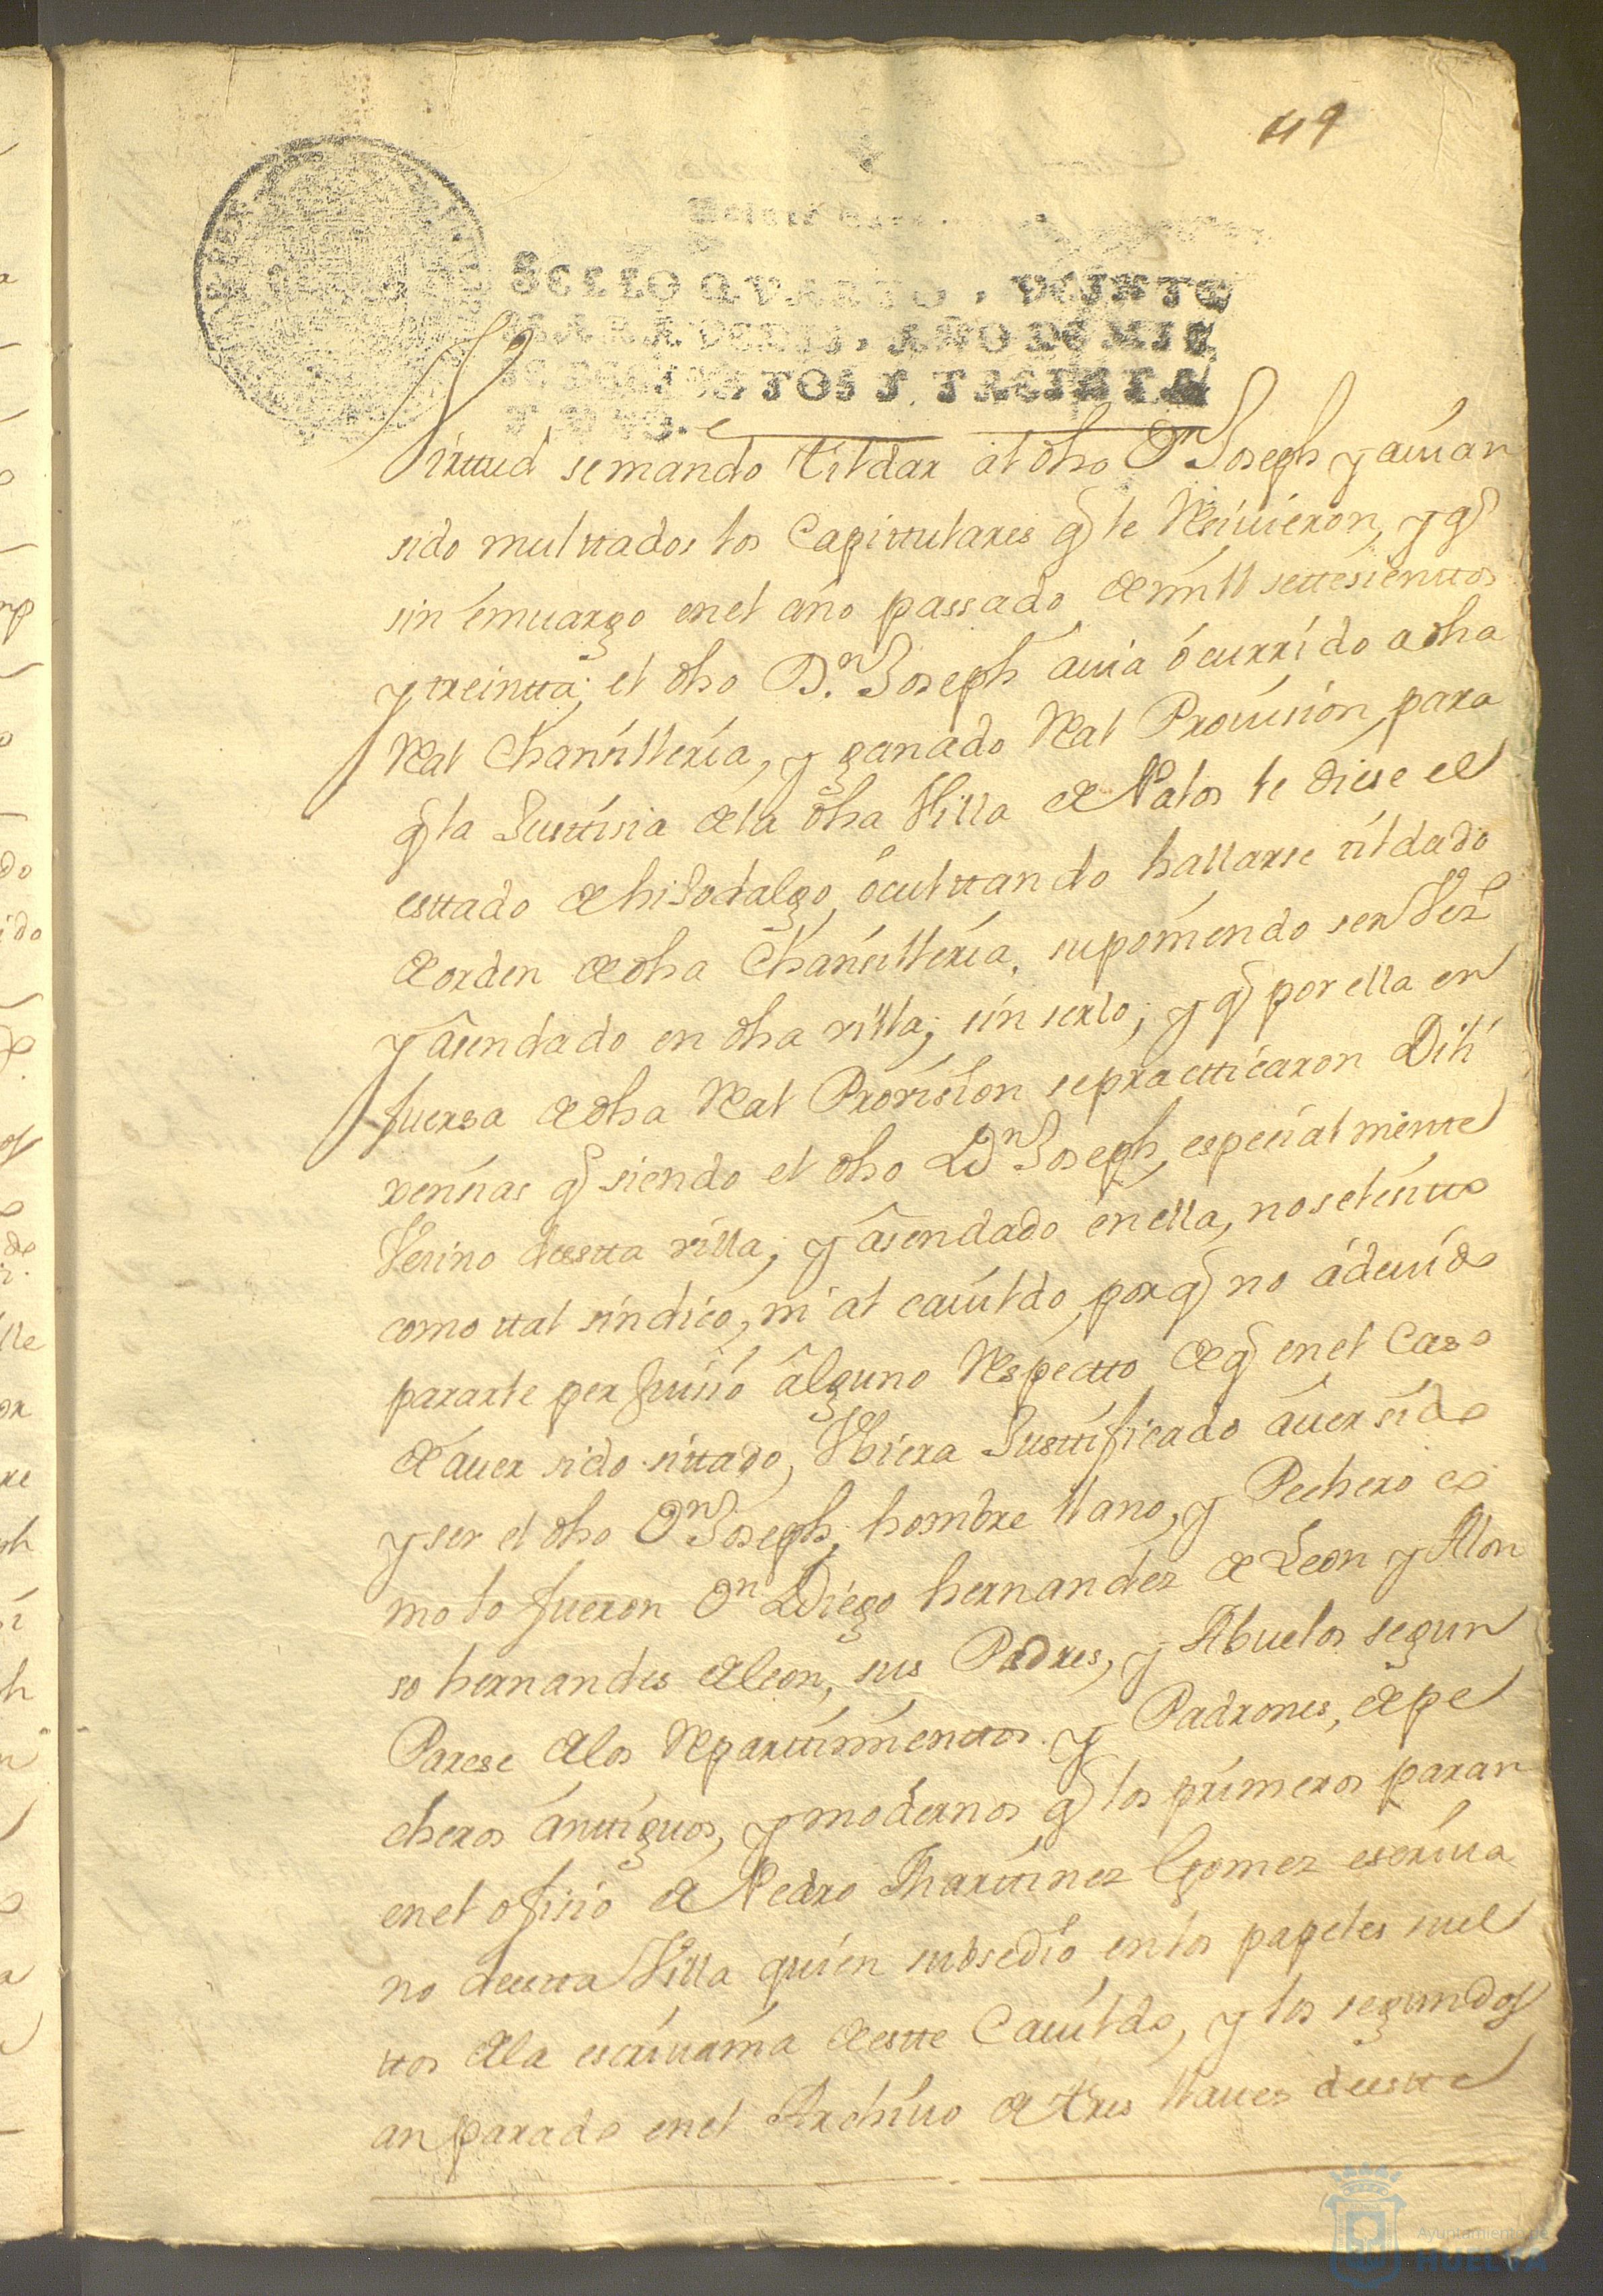 49
SELLO QVARTO, VEINTE
MARAVEDIS, AÑO DE MIL
SETECIENTOS Y TREINTA
Y UNO.
Virttud se mando tildar al dho Dn Joseph y auian
sido multtados los Capittulares q le Resiuieron, y q
sin emuargo en el año passado de mill settesienttos
y treintta; el dho Dn Joseph auia ocurrido a dha
Real Chansilleria, y ganado Real Prouision para
q la Justtisia de la dha Villa de Palos le diese el
esttado de hijodalgo, ocultando hallarse tildado
de orden de dha Chansilleria, suponiendo ser Vez.o
y asendado en dha villa; sin serlo; y q por ella en
fuersa de dha Real Provision se practticaron Dili
xensias q siendo el dho Dn Joseph, espesialmentte
Vesino de estta villa; y asendado en ella, no se le sitto
como ttal sindico, ni al cauildo, por q no a deuido
pararle perjuisio alguno Respectto de q en el Caso
de auer sido sittado, Vbiera Justtificado auer sido
y ser el dho Dn Joseph; hombre llano, y Pechero co
mo lo fueron Dn Diego hernandez de Leon y Alon
so hernandes de leon, sus Padres, y Abuelos segun
Parese de los Reparttimienttos y Padrones, de pe
cheros anttiguos, y modernos q los primeros paran
en el ofisio de Pedro Marttinez Gomez escriua
no de estta Villa quien subsedio en los papeles suel
ttos de la escriuania de estte Cauildo, y los segundos
an parado en el Archiuo de tres llaues de estte
Ayuntamiento de
HUELVA